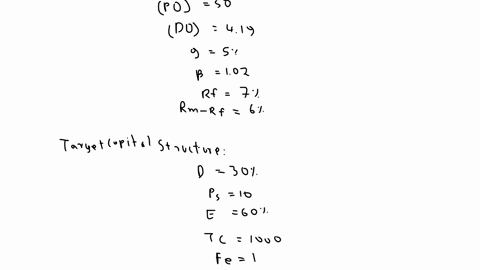 (P0) = 50
(D0) = 4.19
g = 5%
β = 1.02
Rf = 7%
Rm-Rf = 6%
Target Capital Structure:
D = 30%
Ps = 10
E = 60%
TC = 1000
Fe = 1